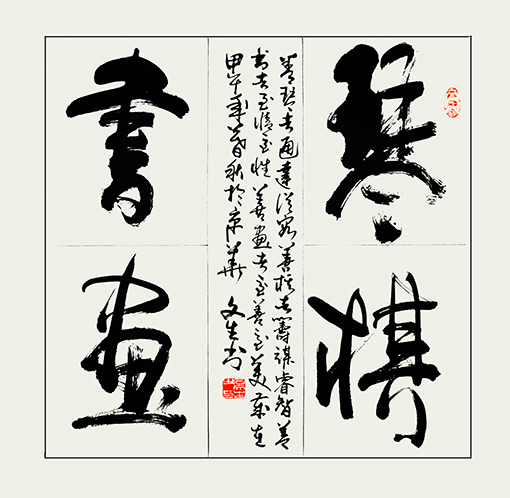 琴
棋
善琴者通達從容善棋者籌謀睿智善
书者至情至性善画者至善至美歲在
甲午年暮秋於京華 文生书
書
畫